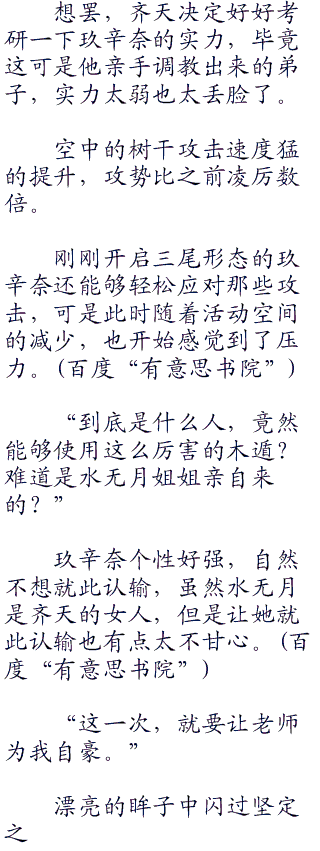 想罢，齐天决定好好考
研一下玖辛奈的实力，毕竟
这可是他亲手调教出来的弟
子，实力太弱也太丢脸了。
空中的树干攻击速度猛
的提升，攻势比之前凌厉数
倍。
刚刚开启三尾形态的玖
辛奈还能够轻松应对那些攻
击，可是此时随着活动空间
的减少，也开始感觉到了压
力。(百度“有意思书院”)
“到底是什么人，竟然
能够使用这么厉害的木遁？
难道是水无月姐姐亲自来
的？”
玖辛奈个性好强，自然
不想就此认输，虽然水无月
是齐天的女人，但是让她就
此认输也有点太不甘心。(百
度“有意思书院”)
“这一次，就要让老师
为我自豪。”
漂亮的眸子中闪过坚定
之